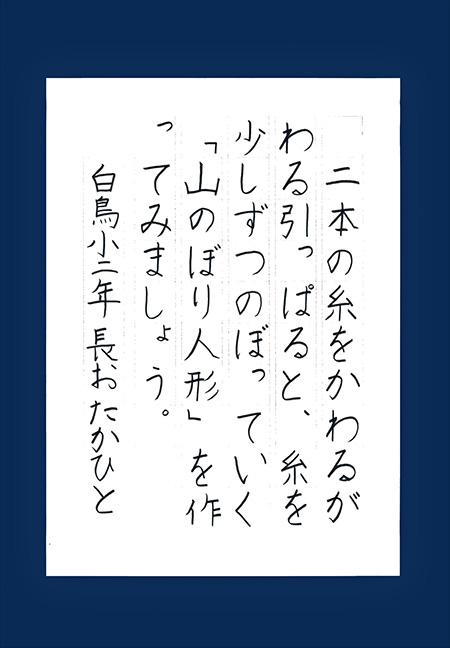 二本の糸をかわるが
わる引っぱると、糸を
少しずつのぼっていく
「山のぼり人形」を作
ってみましょう。
白鳥小二年長おたかひと